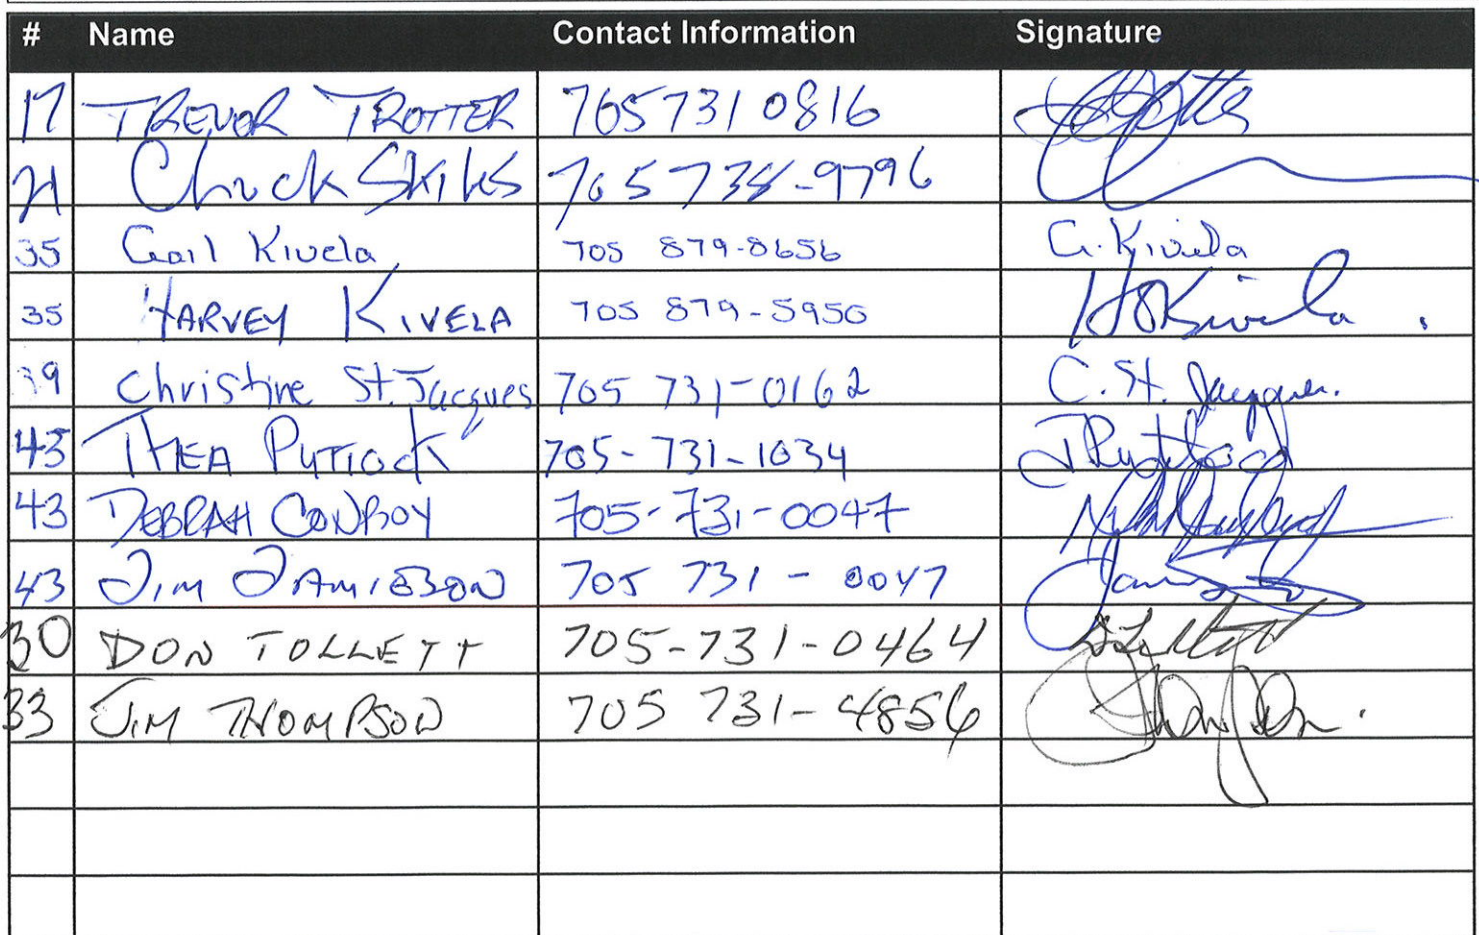 # Name Contact Information Signature
17 TREVOR TROTTER 705 731 0816
21 Chuck Skiles 705 738-9796
35 Gail Kivela 705 879-8656 G. Kivela
35 HARVEY KIVELA 705 879-5950 H Kivela
39 Christine St. Jacques 705 731-0162 C. St. Jacques.
45 THEA PUTTOCK 705-731-1034
43 DEBRAH CONROY 705-731-0047
43 JIM JAMIESON 705 731-0047
30 DON TOLLETT 705-731-0464
33 JIM THOMPSON 705 731-4856